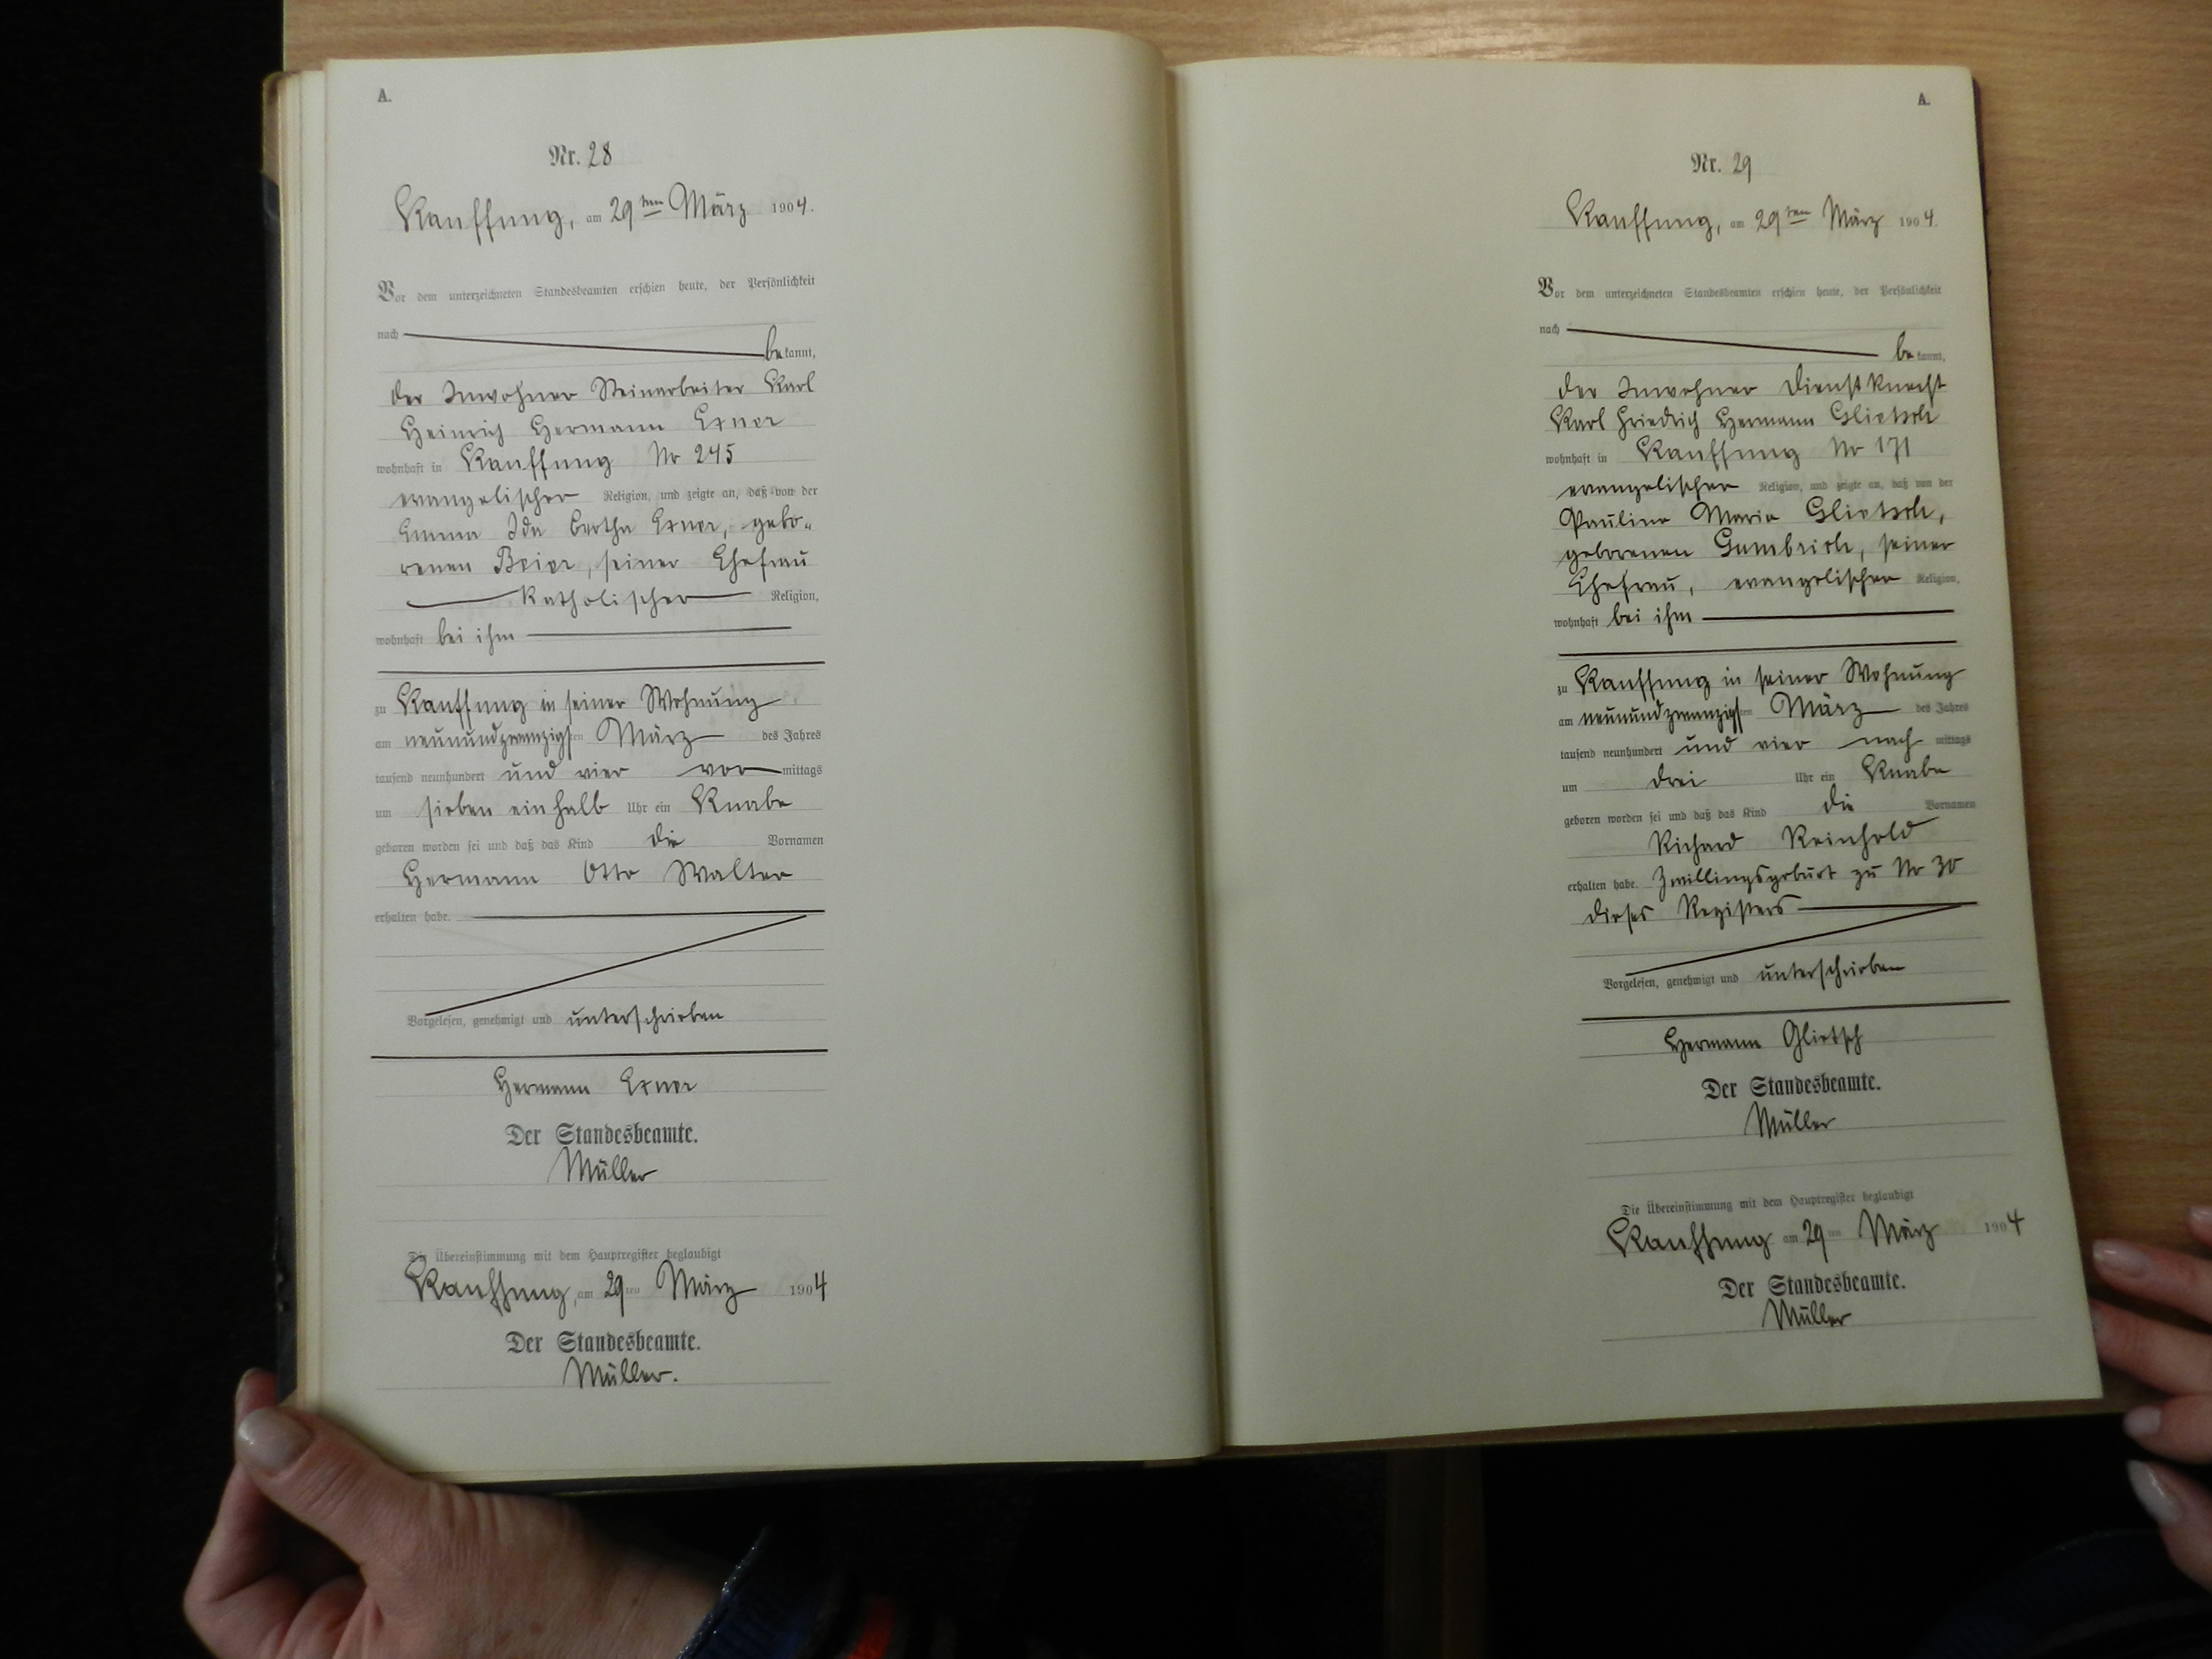 A.
Nr. 28
Kauffung, am 29ten März 1904.
Vor dem unterzeichneten Standesbeamten erschien heute, der Persönlichkeit
nach
bekannt,
der Inwohner Steinarbeiter Karl
Heinrich Hermann Exner
wohnhaft in Kauffung No 245
evangelischer Religion, und zeigte an, daß von der
Emma Ida Bertha Exner, gebo-
renen Beier, seiner Ehefrau
katholischer Religion,
wohnhaft bei ihm
zu Kauffung in seiner Wohnung
am neunundzwanzigsten März des Jahres
tausend neunhundert und vier vormittags
um sieben einhalb Uhr ein Knabe
geboren worden sei und daß das Kind die Vornamen
Hermann Otto Walter
erhalten habe.
Vorgelesen, genehmigt und unterschrieben
Hermann Exner
Der Standesbeamte.
Müller
Die Übereinstimmung mit dem Hauptregister beglaubigt
Kauffung, am 29ten März 1904
Der Standesbeamte.
Müller.
A.
Nr. 29
Kauffung, am 29ten März 1904.
Vor dem unterzeichneten Standesbeamten erschien heute, der Persönlichkeit
nach
bekannt,
der Inwohner Dienstknecht
Karl Friedrich Hermann Glietsch
wohnhaft in Kauffung No 171
evangelischer Religion, und zeigte an, daß von der
Pauline Marie Glietsch,
geborenen Gambrich, seiner
Ehefrau, evangelischer Religion,
wohnhaft bei ihm
zu Kauffung in seiner Wohnung
am neunundzwanzigsten März des Jahres
tausend neunhundert und vier nachmittags
um drei Uhr ein Knabe
geboren worden sei und daß das Kind die Vornamen
Richard Reinhold
erhalten habe. Zwillingsgeburt zu No 30
dieses Registers
Vorgelesen, genehmigt und unterschrieben
Hermann Glietsch
Der Standesbeamte.
Müller
Die Übereinstimmung mit dem Hauptregister beglaubigt
Kauffung am 29ten März 1904
Der Standesbeamte.
Müller